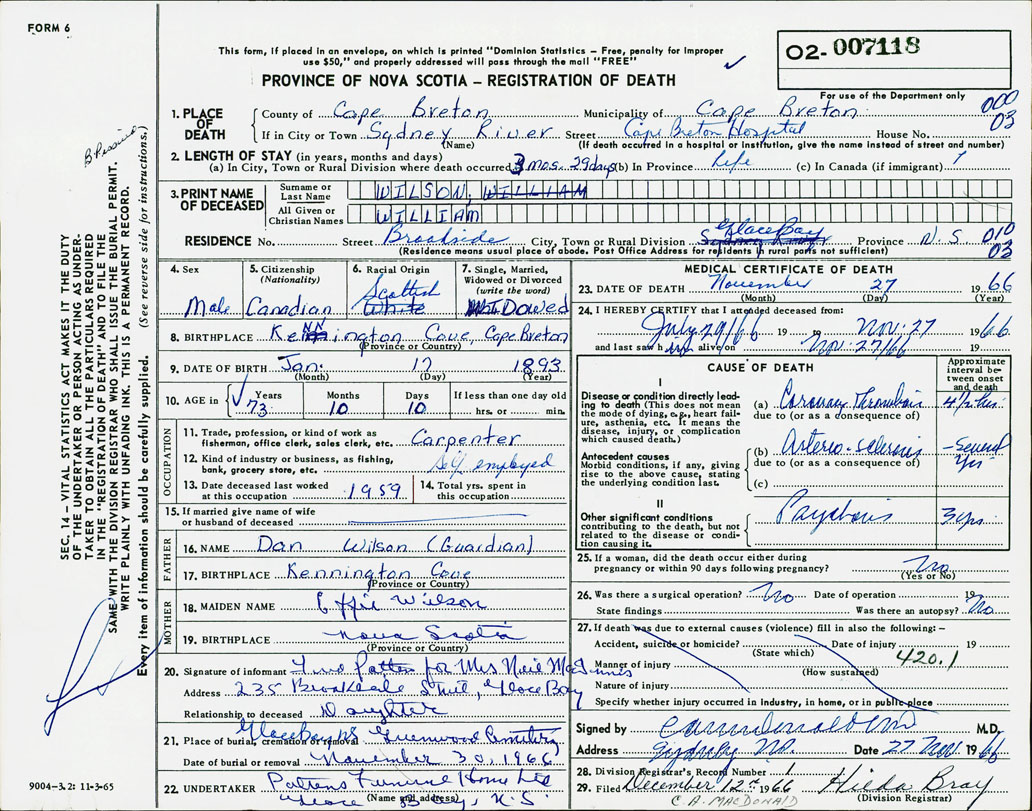 FORM 6
This form, if placed in an envelope, on which is printed "Dominion Statistics – Free, penalty for improper
use $50," and properly addressed will pass through the mail "FREE"
PROVINCE OF NOVA SCOTIA – REGISTRATION OF DEATH
02-007118
For use of the Department only
1. PLACE OF DEATH
County of Cape Breton Municipality of Cape Breton 000
If in City or Town Sydney River Street Cape Breton Hospital House No. 03
(Name) (If death occurred in a hospital or institution, give the name instead of street and number)
2. LENGTH OF STAY (in years, months and days)
(a) In City, Town or Rural Division where death occurred 3 mos. 29 days (b) In Province Life (c) In Canada (if immigrant)
3. PRINT NAME OF DECEASED
Surname or Last Name WILSON, WILLIAM
All Given or Christian Names WILLIAM
RESIDENCE No. Street Brookside City, Town or Rural Division Glace Bay Province N.S 010
(Residence means usual place of abode. Post Office Address for residents in rural parts not sufficient) 03
4. Sex Male
5. Citizenship (Nationality) Canadian
6. Racial Origin Scottish White
7. Single, Married, Widowed or Divorced (write the word) WIDowed
8. BIRTHPLACE Kennington Cove, Cape Breton
(Province or Country)
9. DATE OF BIRTH Jan. 17 1893
(Month) (Day) (Year)
10. AGE in Years 73 Months 10 Days 10 If less than one day old hrs. or min.
OCCUPATION
11. Trade, profession, or kind of work as fisherman, office clerk, sales clerk, etc. Carpenter
12. Kind of industry or business, as fishing, bank, grocery store, etc. Self employed
13. Date deceased last worked at this occupation 1959
14. Total yrs. spent in this occupation
15. If married give name of wife or husband of deceased
FATHER
16. NAME Dan Wilson (Guardian)
17. BIRTHPLACE Kennington Cove
(Province or Country)
MOTHER
18. MAIDEN NAME Effie Wilson
19. BIRTHPLACE Nova Scotia
(Province or Country)
20. Signature of informant Patten for Mrs Neil MacInnis
Address 235 Brookdale Street, Glace Bay
Relationship to deceased Daughter
21. Place of burial, cremation or removal Greenwood Cemetery
Date of burial or removal November 30, 1966
22. UNDERTAKER Pattens Funeral Home Ltd
(Name and address) Glace Bay, N.S.
MEDICAL CERTIFICATE OF DEATH
23. DATE OF DEATH November 27 1966
(Month) (Day) (Year)
24. I HEREBY CERTIFY that I attended deceased from:
July 29/66 19 to Nov. 27 1966
and last saw him alive on Nov. 27/66 19
CAUSE OF DEATH
Approximate interval between onset and death
I
Disease or condition directly leading to death (This does not mean the mode of dying, e.g., heart failure, asthenia, etc. It means the disease, injury, or complication which caused death.)
(a) Coronary Thrombosis 4½ hrs.
due to (or as a consequence of)
Antecedent causes
Morbid conditions, if any, giving rise to the above cause, stating the underlying condition last.
(b) Arterio-sclerosis – Several yrs
due to (or as a consequence of)
(c)
II
Other significant conditions contributing to the death, but not related to the disease or condition causing it.
Psychosis 3 yrs.
25. If a woman, did the death occur either during pregnancy or within 90 days following pregnancy? No
(Yes or No)
26. Was there a surgical operation? No Date of operation 19
State findings Was there an autopsy? No
27. If death was due to external causes (violence) fill in also the following:–
Accident, suicide or homicide? Date of injury 19
(State which) 420.1
Manner of injury
(How sustained)
Nature of injury
Specify whether injury occurred in industry, in home, or in public place
Signed by M.D.
Address Sydney N.S. Date 27 Nov. 1966
28. Division Registrar's Record Number
29. Filed December 12th 1966 Hilda Bray
(Division Registrar)
C. A. MACDONALD
SEC. 14 – VITAL STATISTICS ACT MAKES IT THE DUTY
OF THE UNDERTAKER OR PERSON ACTING AS UNDER-
TAKER TO OBTAIN ALL THE PARTICULARS REQUIRED
IN THE "REGISTRATION OF DEATH" AND TO FILE THE
SAME WITH THE DIVISION REGISTRAR WHO SHALL ISSUE THE BURIAL PERMIT.
WRITE PLAINLY WITH UNFADING INK. THIS IS A PERMANENT RECORD.
Every item of information should be carefully supplied. (See reverse side for instructions.)
9004–3.2: 11-3-65